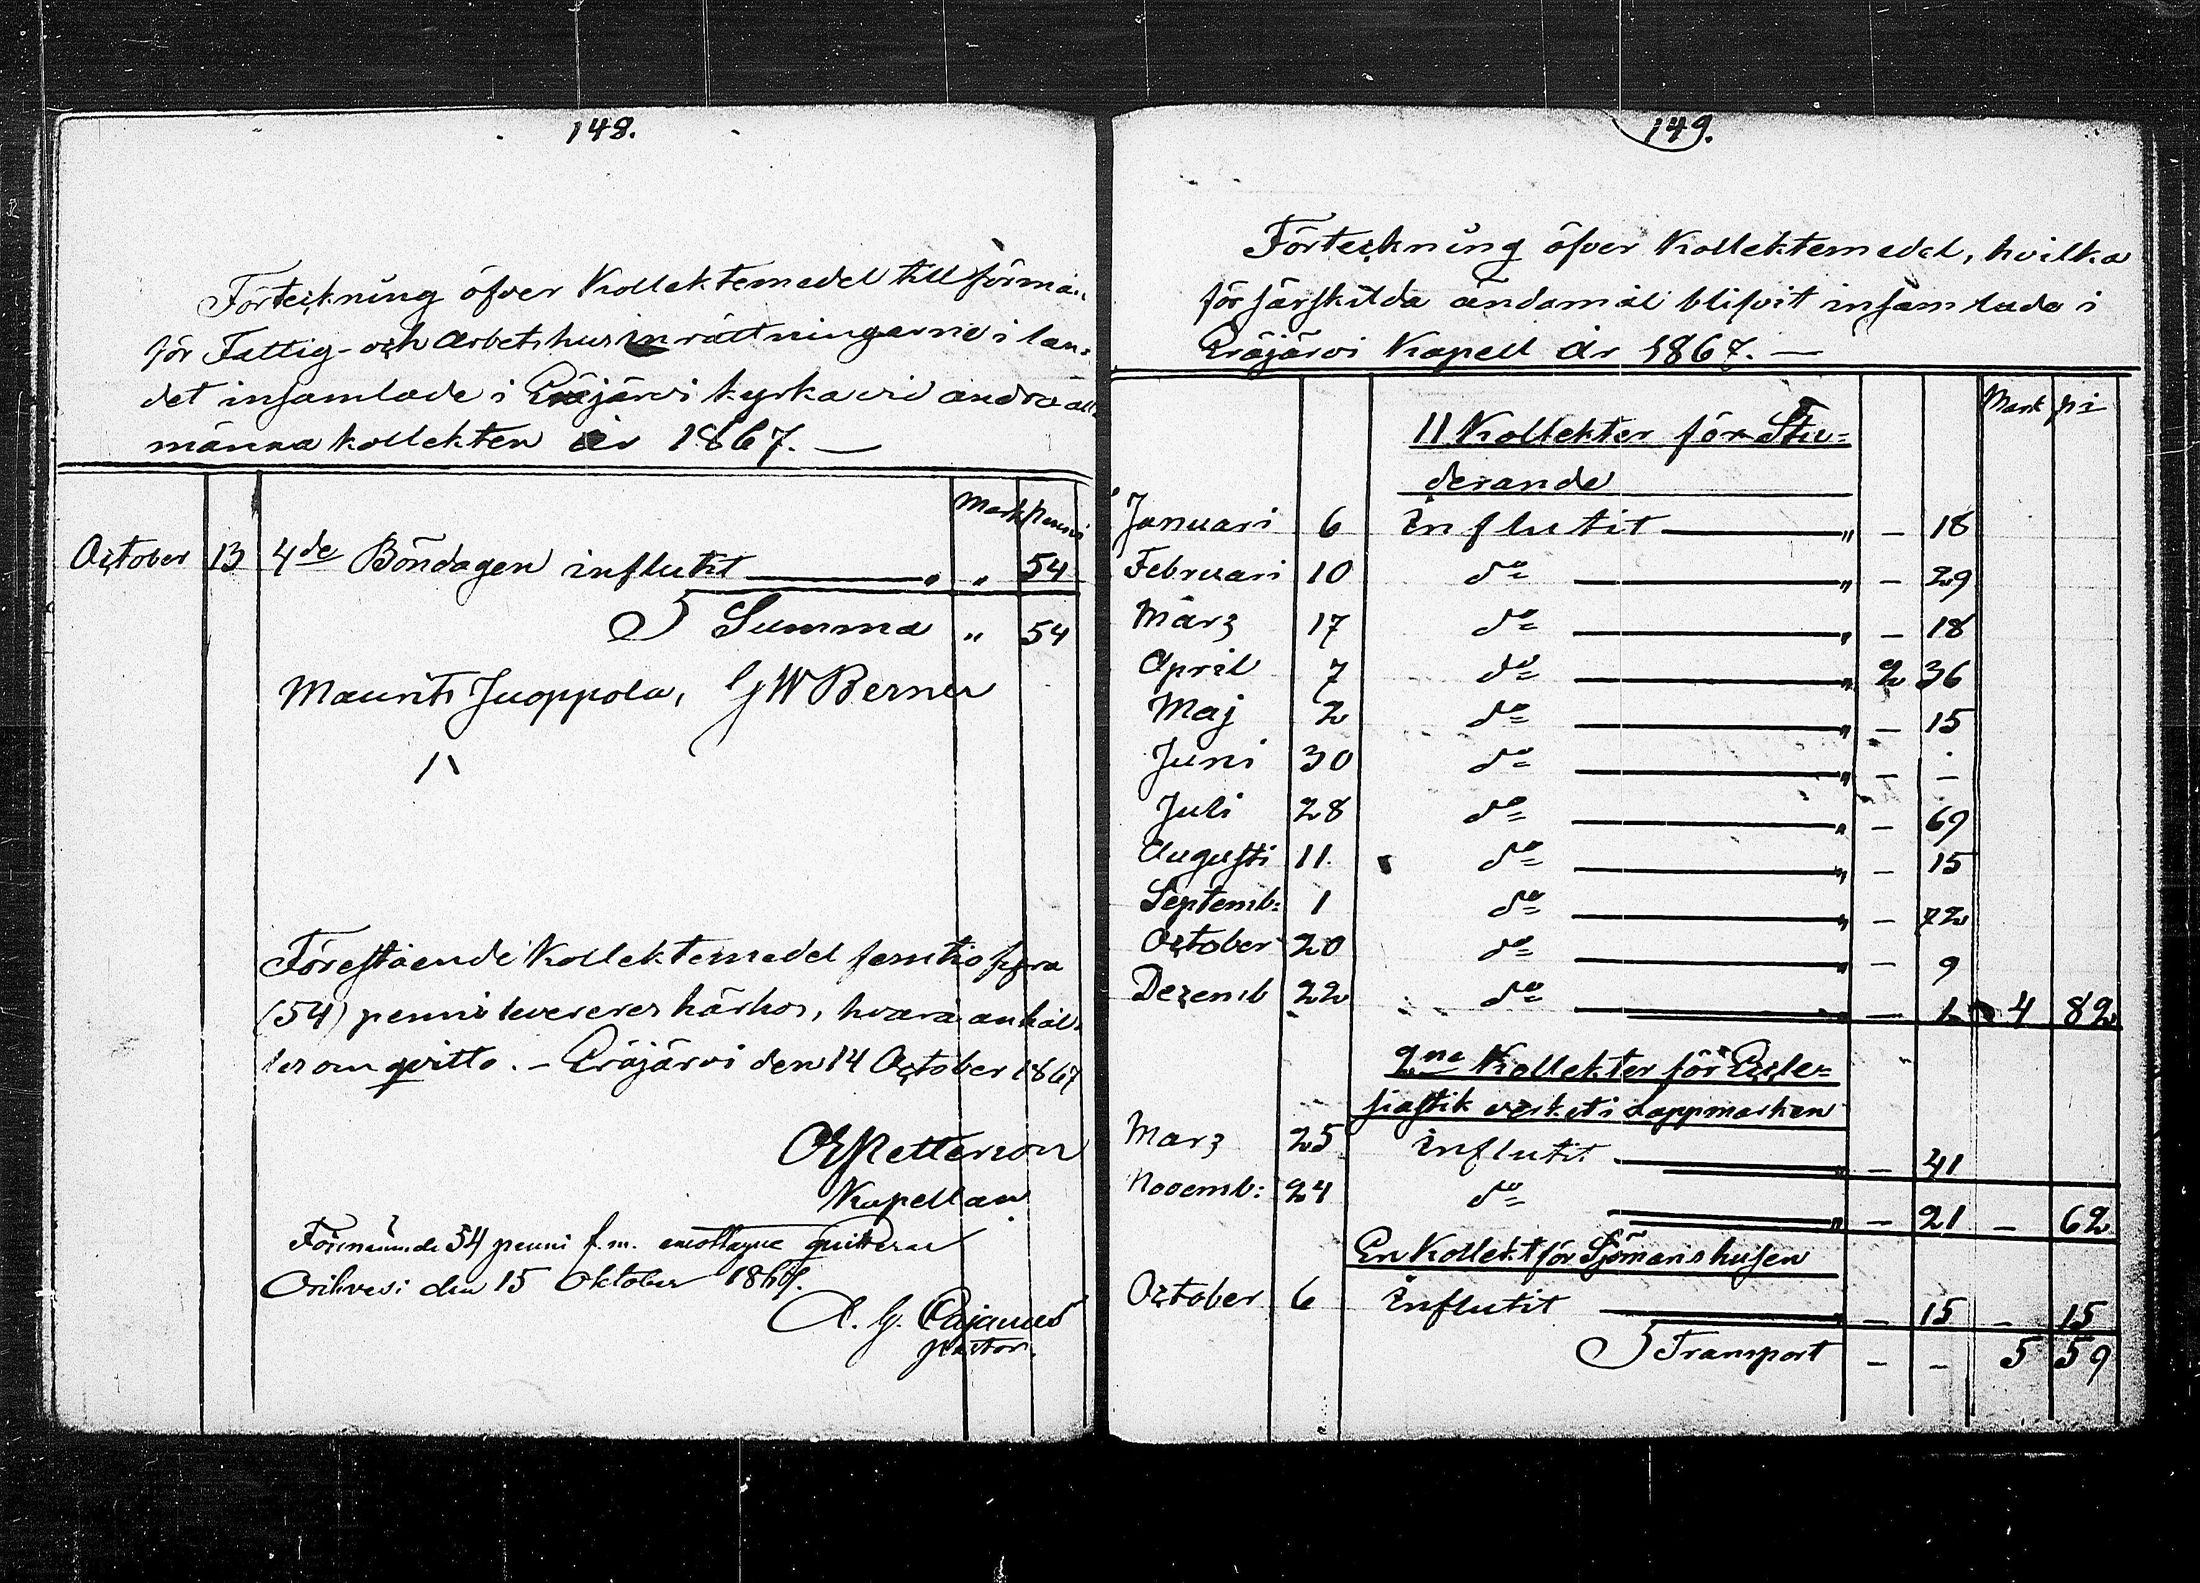 148.
Förteckning öfver Kollektemedel till förmån
för Fattig- och Arbetshusinrättningarne i lan-
det insamlade i Eräjärvi kyrka vid andra all-
männa kollekten år 1867. —
Mark Penni
October 13 4de Böndagen influtit — " " 54
Summa " 54
Maurits Juoppola, GW Berner
Förestående Kollektemedel femtiofyra
(54) penni levereres härhos, hvarå anhål-
les om qvitto. – Eräjärvi den 14 October 1867
Petterson
Kapellan
Förnämnde 54 penni f. m. emottagne quitterar
Orihvesi den 15 Oktober 1867.
A. G. Cajanus
pastor.
149.
Förteckning öfver Kollektemedel, hvilka
för särskilda ändamål blifvit insamlade i
Eräjärvi Kapell år 1867. —
Mark pi
11 Kollekter för Stu-
derande
Januari 6 Influtit — " – 18
Februari 10 do — " – 29
Marz 17 do — " – 18
April 7 do — " 2 36
Maj 2 do — " – 15
Juni 30 do — " – –
Juli 28 do — " – 69
Augusti 11. do — " – 15
Septemb: 1 do — " – 72
October 20 do — " – 9
Dezemb 22 do — " – 1 4 82
2ne Kollekter för Eccle-
siastik verket i Lappmarken
Marz 25 Influtit — " – 41
Novemb: 24 do — " – 21 – 62
En Kollekt för Sjömanshusen
October 6 Influtit — " – 15 – 15
Transport – – 5 59